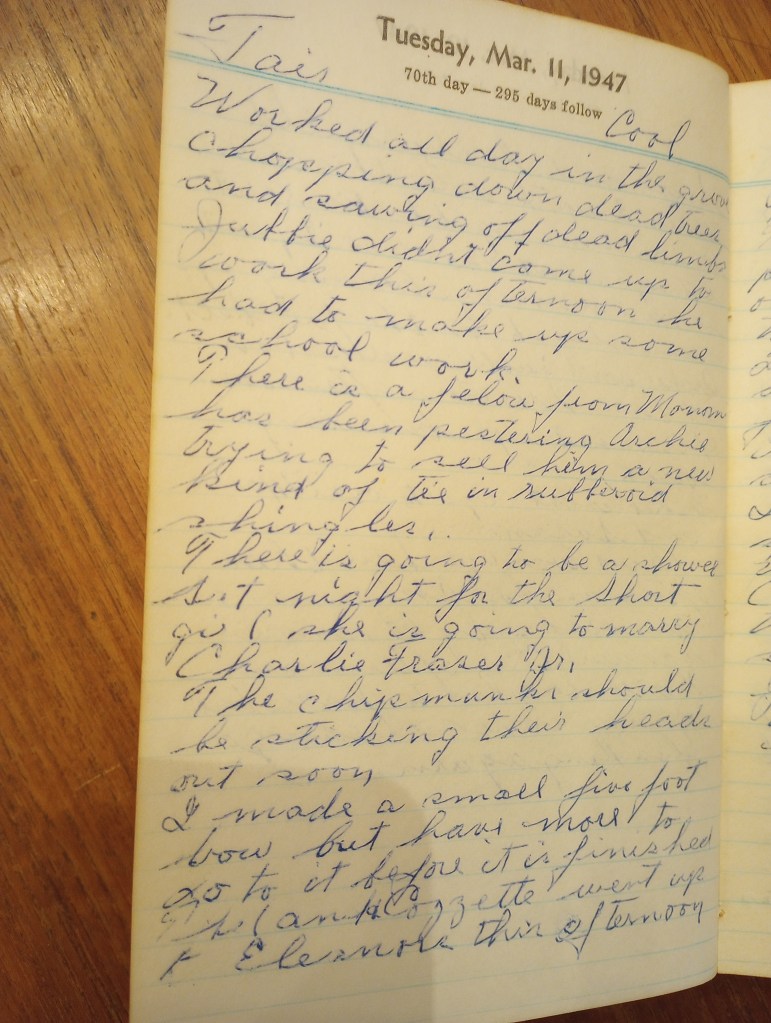 Tuesday, Mar. 11, 1947
70th day — 295 days follow
Fair
Cool
Worked all day in the grove
chopping down dead trees
and sawing off dead limbs
didnt come up to
work this afternoon he
had to make up some
school work.
There is a felow from
has been pestering Archie
trying to sell him a new
kind of tie in rubberoid
shingles.
There is going to be a shower
Sat night for the Short
girl she is going to marry
Charlie Fraser Jr.
The chipmunks should
be sticking their heads
out soon
I made a small five foot
bow but have more to
do to it before it is finished
and Cozzette went up
to this afternoon